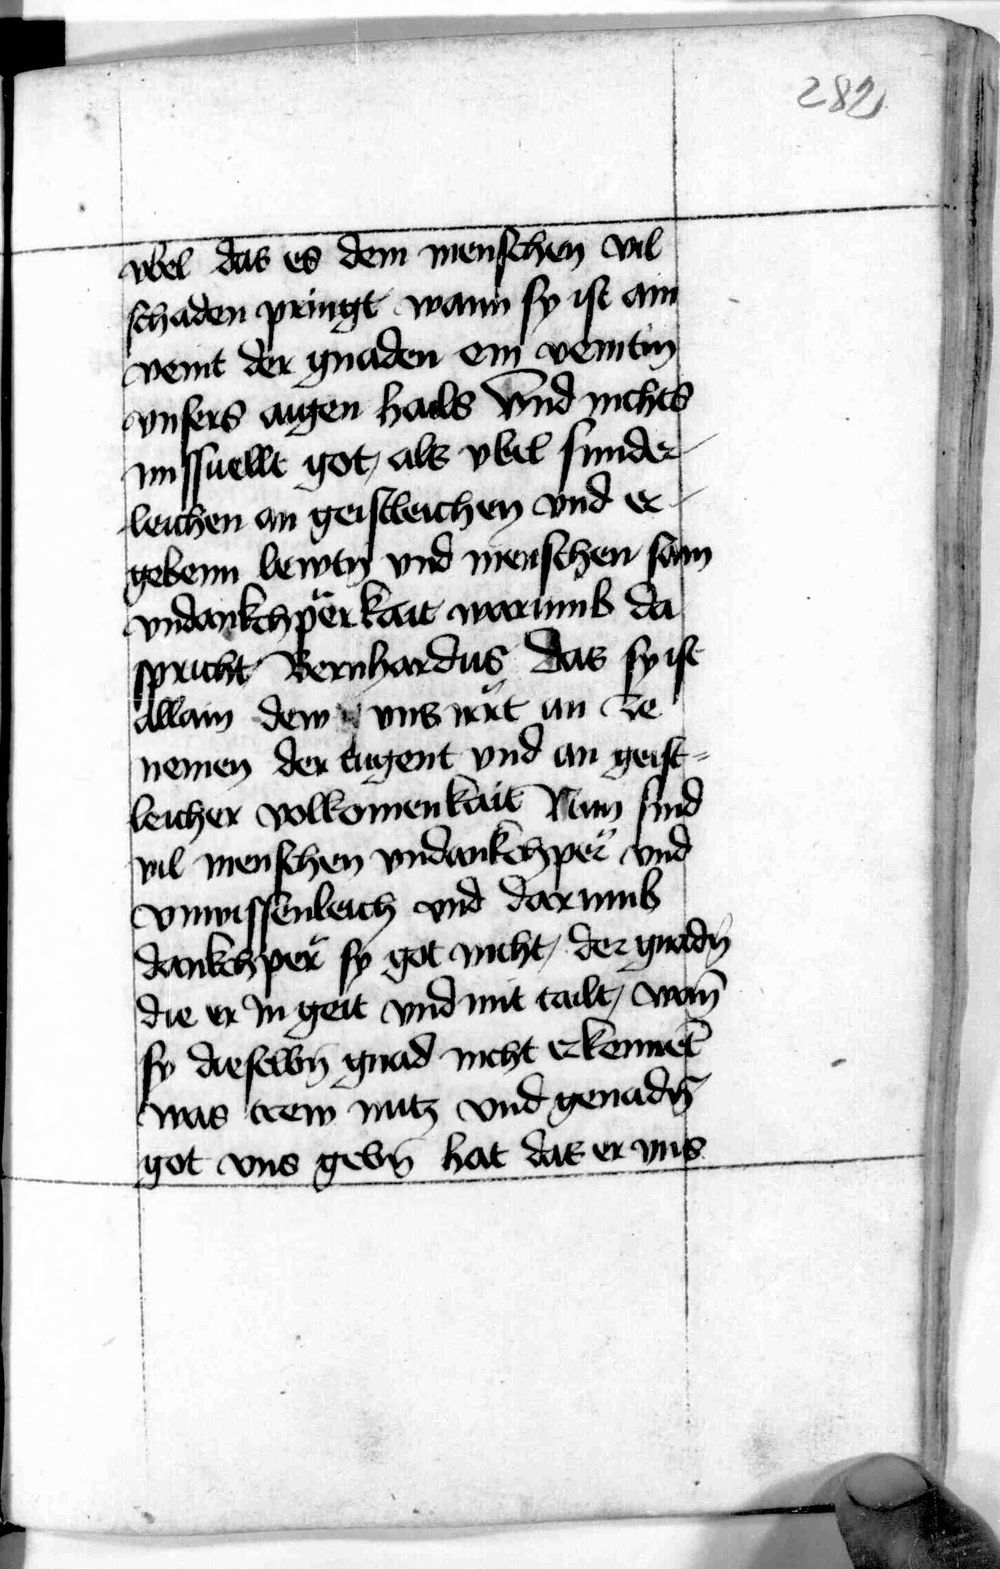 282
vbel das es dem menschen vil
schaden pringt wann sy ist ain
veint der gnaden ein veintin
vnsers aigen hails Vnd nichts
missuellt got / als vbel sunder-
leichen an geistleichen vnd er-
gebenn lewtn vnd menschen sam
vndankchpërkait warumb da
spricht Bernhardus Das sy ist
allain dew vns irrt an ze
nemen der tugent vnd an geist=
leicher volkomenkait Nun sind
vil menschen vndankchper vnd
vnwissenleich vnd darumb
dankchper sy got nicht / der gnadn̄
die er In geit vnd mit tailt / wan̄
sy dieselbn̄ gnad nicht erkennēt
was trew nutz vnd genadn̄
got vns gebn̄ hat das er vns